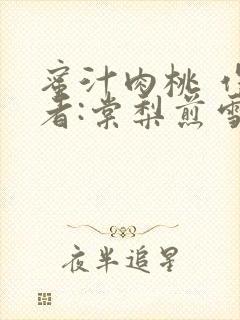 蜜汁肉桃 作
者:棠梨煎雪
夜半追星